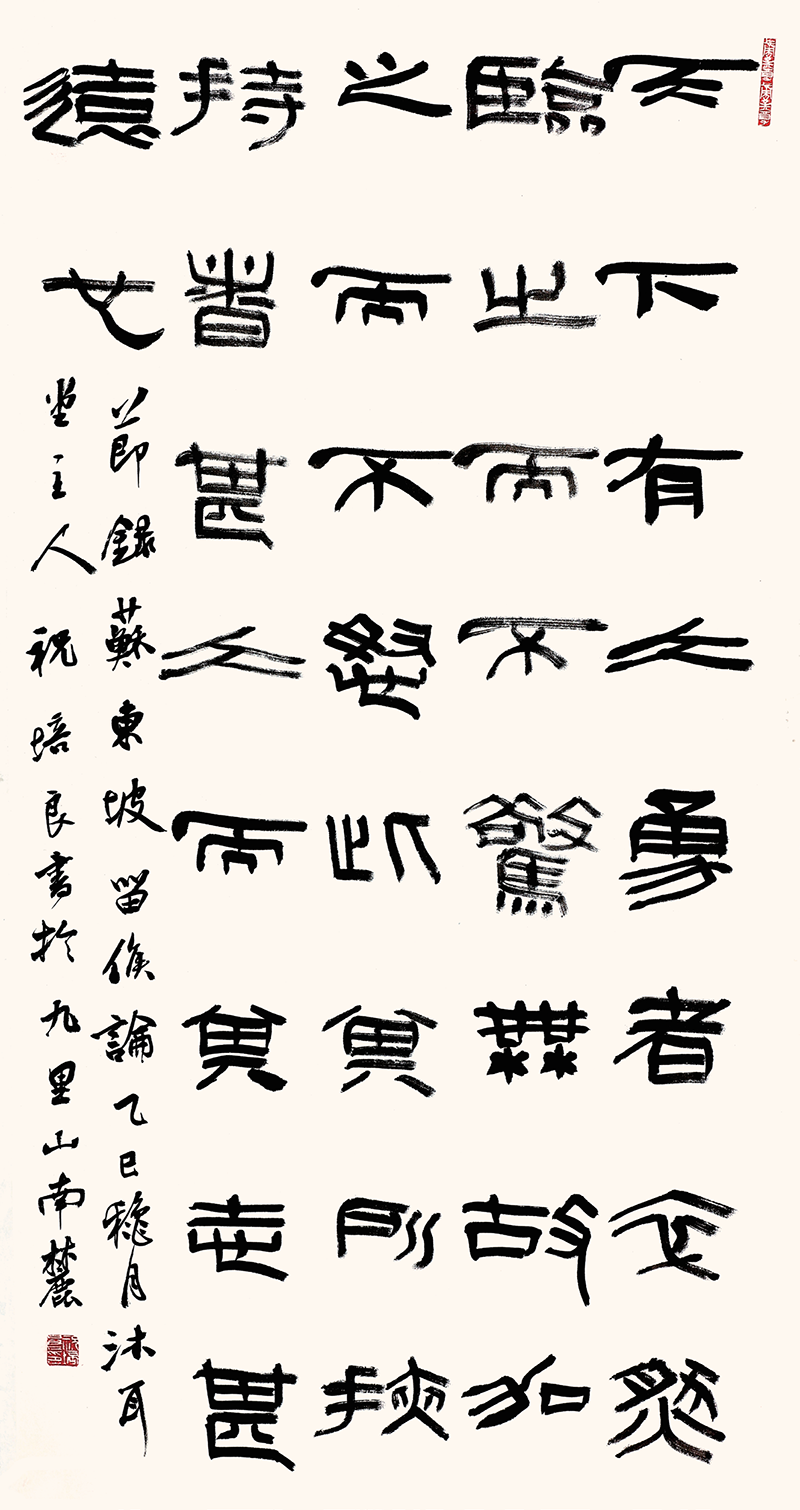 天下有大勇者卒然
臨之而不驚無故加
之而不怒此其所挾
持者甚大而其志甚
遠也
節錄蘇東坡留侯論乙巳穐月沐耳
堂主人祝培良書於九里山南麓